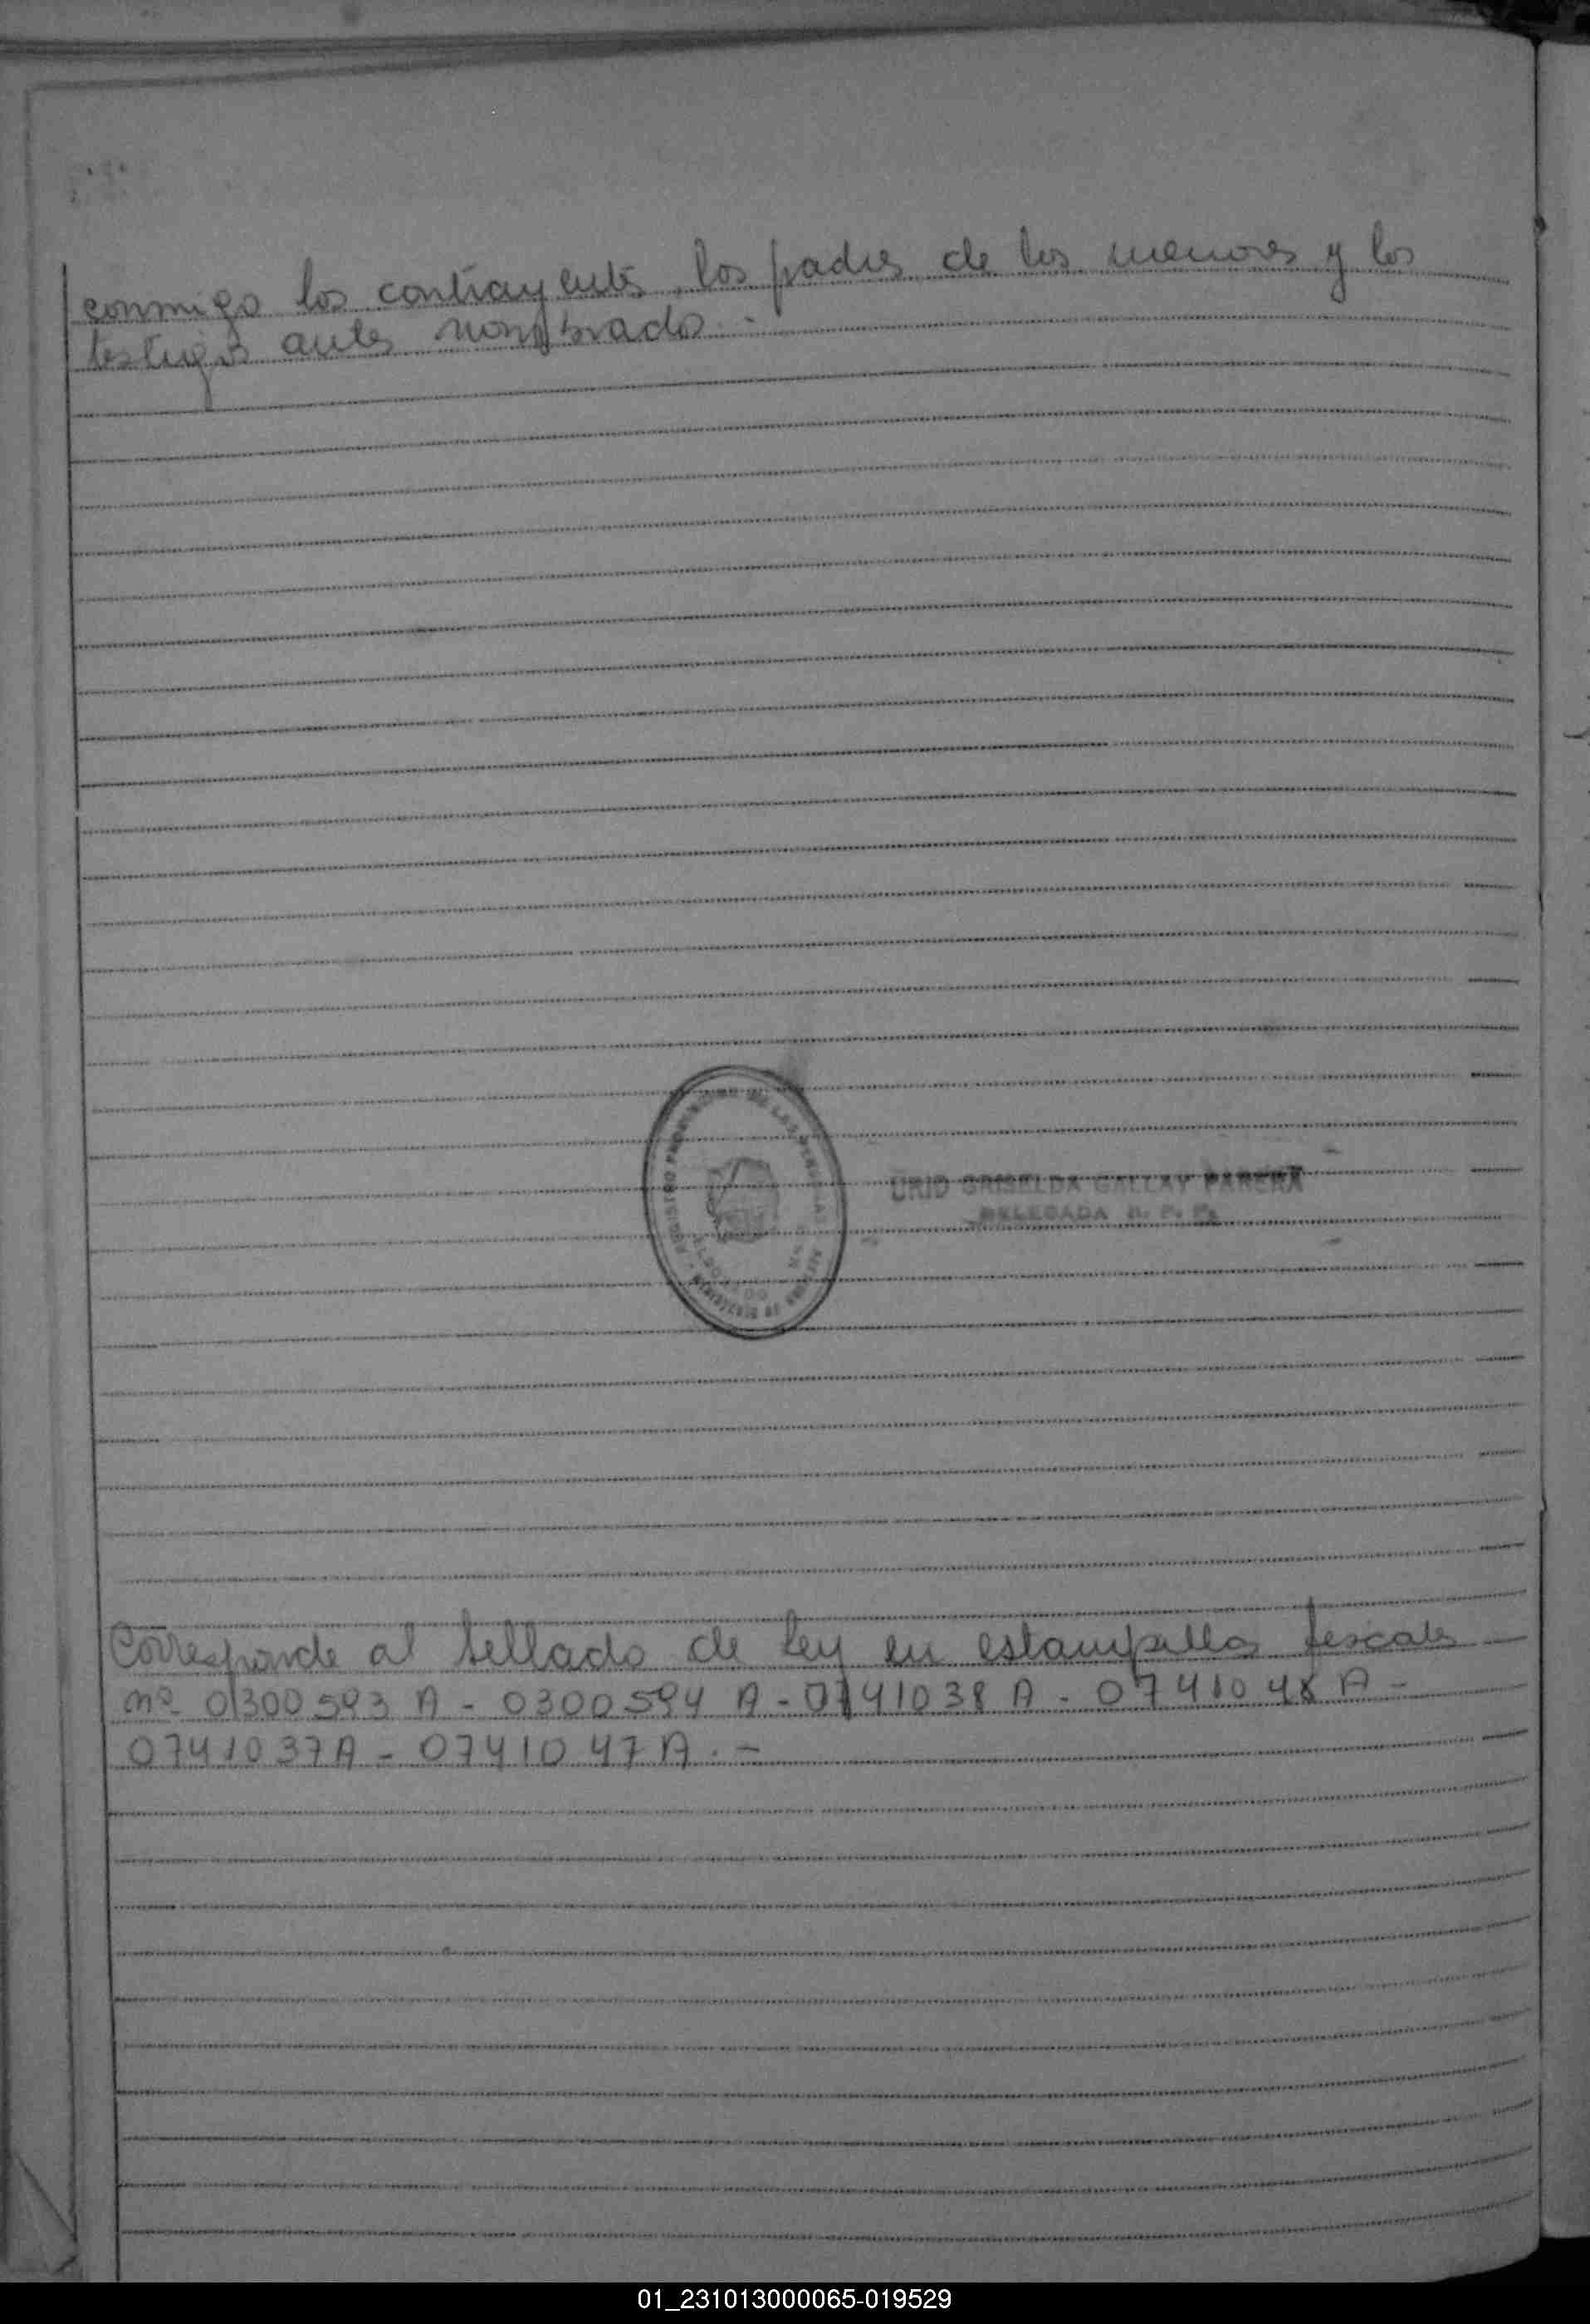 conmigo los contrayentes, los padres de los menores y los
testigos antes nombrados.-
REGISTRO PROVINCIAL DE LAS PERSONAS
ELDORADO
GRISELDA GALLAY PARERA
DELEGADA R. P. P.
Corresponde al sellado de Ley en estampillas fiscales
nº 0300593 A - 0300594 A - 0741038 A - 0741048 A -
0741037A - 0741047A.-
01_231013000065-019529